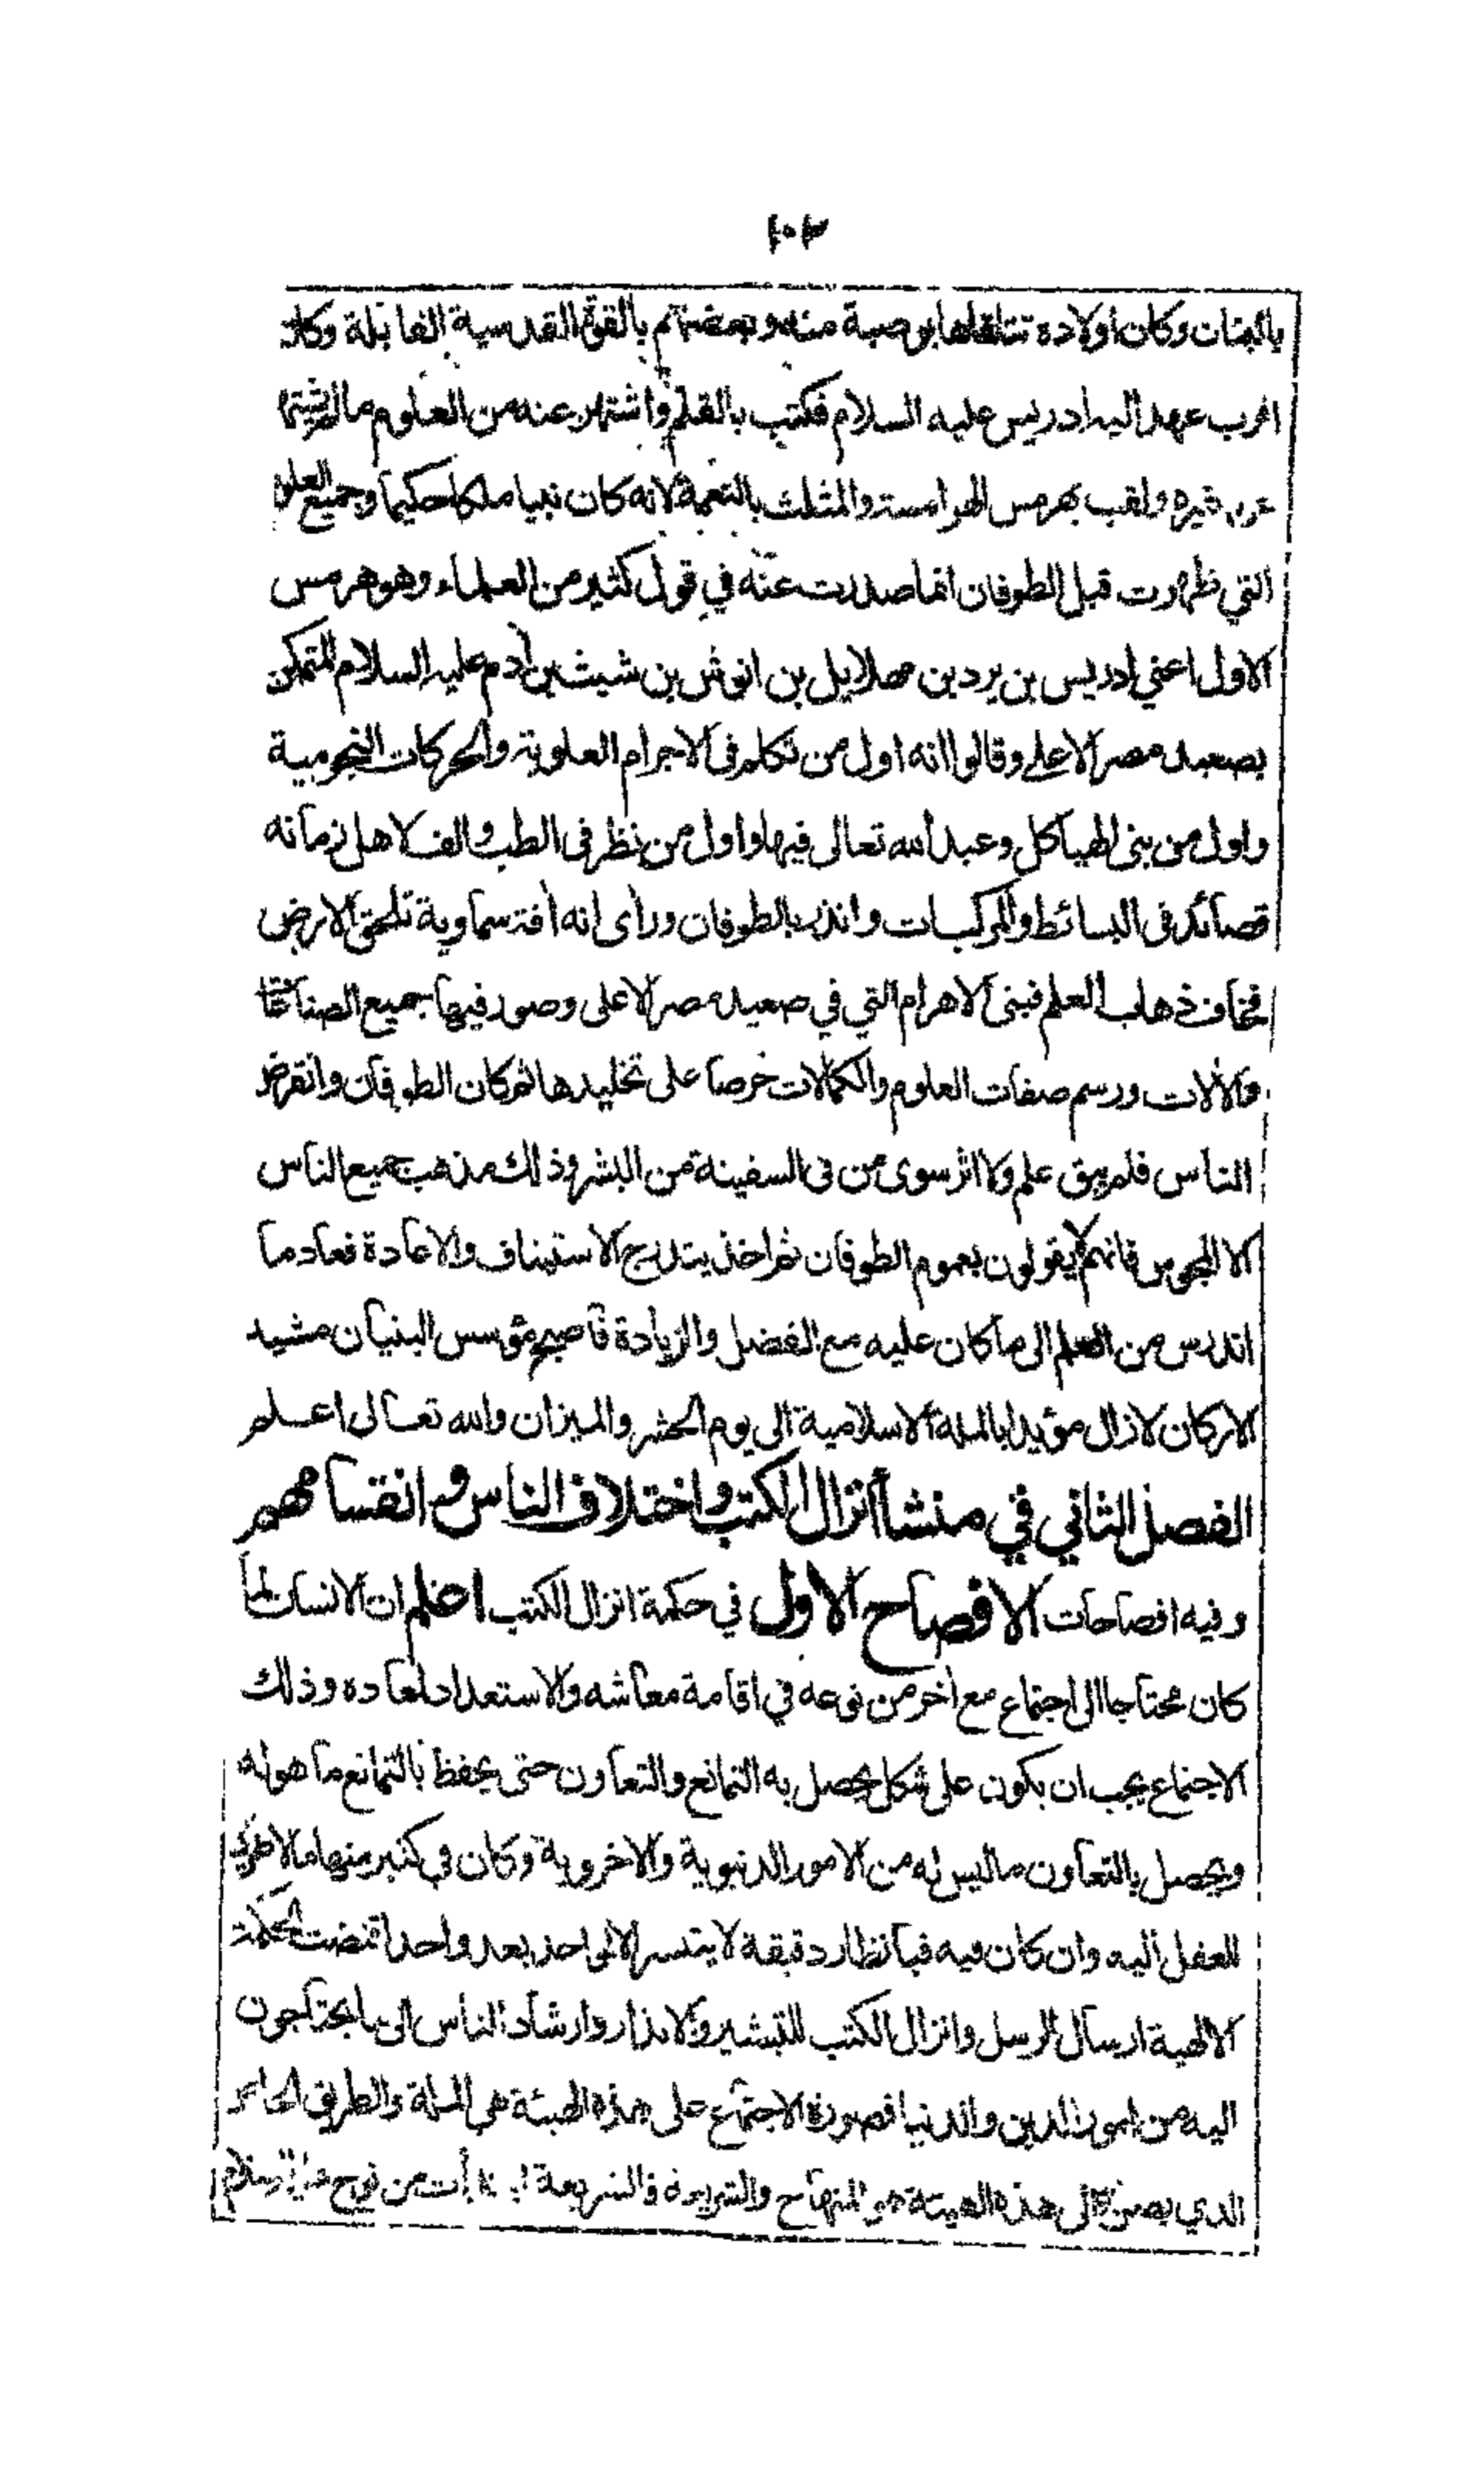 ١٠٣
بالبنان وكان اولاده تتلقاها بوصية منه وبعضهم بالقوة القدسية القابلة وكان
اقرب عهد اليه ادريس عليه السلام فكتب بالقلم واشتهر عنه من العلوم ما لم يشتهر
عن غيره ولقب بهرمس الهرامسة والمثلث بالنعمة لانه كان نبيا ملكا حكيما وجميع العلوم
التي ظهرت قبل الطوفان انما صدرت عنه في قول كثير من العلماء وهو هرمس
الاول اعني ادريس بن يرد بن مهلايل بن انوش بن شيث بن آدم عليه السلام المتمكن
بصعيد مصر الاعلى وقالوا انه اول من تكلم في الاجرام العلوية والحركات النجومية
واول من بنى الهياكل وعبد الله تعالى فيها واول من نظر في الطب والف لاهل زمانه
قصائد في البسائط والمركبات وانذر بالطوفان ورأى انه آفة سماوية تلحق الارض
فخاف ذهاب العلم فبنى الاهرام التي في صعيد مصر الاعلى وصور فيها جميع الصناعات
والآلات ورسم صفات العلوم والكمالات حرصا على تخليدها ثم كان الطوفان وانقرض
الناس فلم يبق علم ولا اثر سوى من في السفينة من البشر وذلك مذهب جميع الناس
الا المجوس فانهم لا يقولون بعموم الطوفان ثم اخذ يتدرج الاستيناف والاعادة فعاد ما
اندرس من العلم الى ما كان عليه مع الفضل والزيادة فاصبح مؤسس البنيان مشيد
الاركان لازال مؤيدا بالملة الاسلامية الى يوم الحشر والميزان والله تعالى اعلم
الفصل الثاني في منشأ انزال الكتب واختلاف الناس وانقسامهم
وفيه افصاحات الافصاح الاول في حكمة انزال الكتب اعلم ان الانسان لما
كان محتاجا الى اجتماع مع آخر من نوعه في اقامة معاشه والاستعداد لمعاده وذلك
الاجتماع يجب ان يكون على شكل يحصل به التمانع والتعاون حتى يحفظ بالتمانع ما هو له
ويحصل بالتعاون ما ليس له من الامور الدنيوية والاخروية وكان في كثير منها ما لا طريق
للعقل اليه وان كان فيه فبانظار دقيقة لا يتيسر الا لواحد بعد واحد اقتضت الحكمة
الالهية ارسال الرسل وانزال الكتب للتبشير والانذار وارشاد الناس الى ما يحتاجون
اليه من امور الدين والدنيا فصورة الاجتماع على هذه الهيئة هي الملة والطريق الخاص
الذي يصل الى هذه الهيئة هو المنهاج والشريعة فالشريعة ابتدأت من نوح عليه السلام